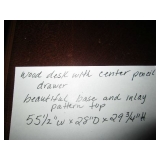 wood desk with center pencil
drawer
beautiful base and inlay
pattern top
55 1/2" W x 28" D x 29 3/4" H